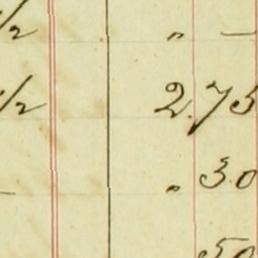 1/2 " —
1/2 2.75
— " 30
50